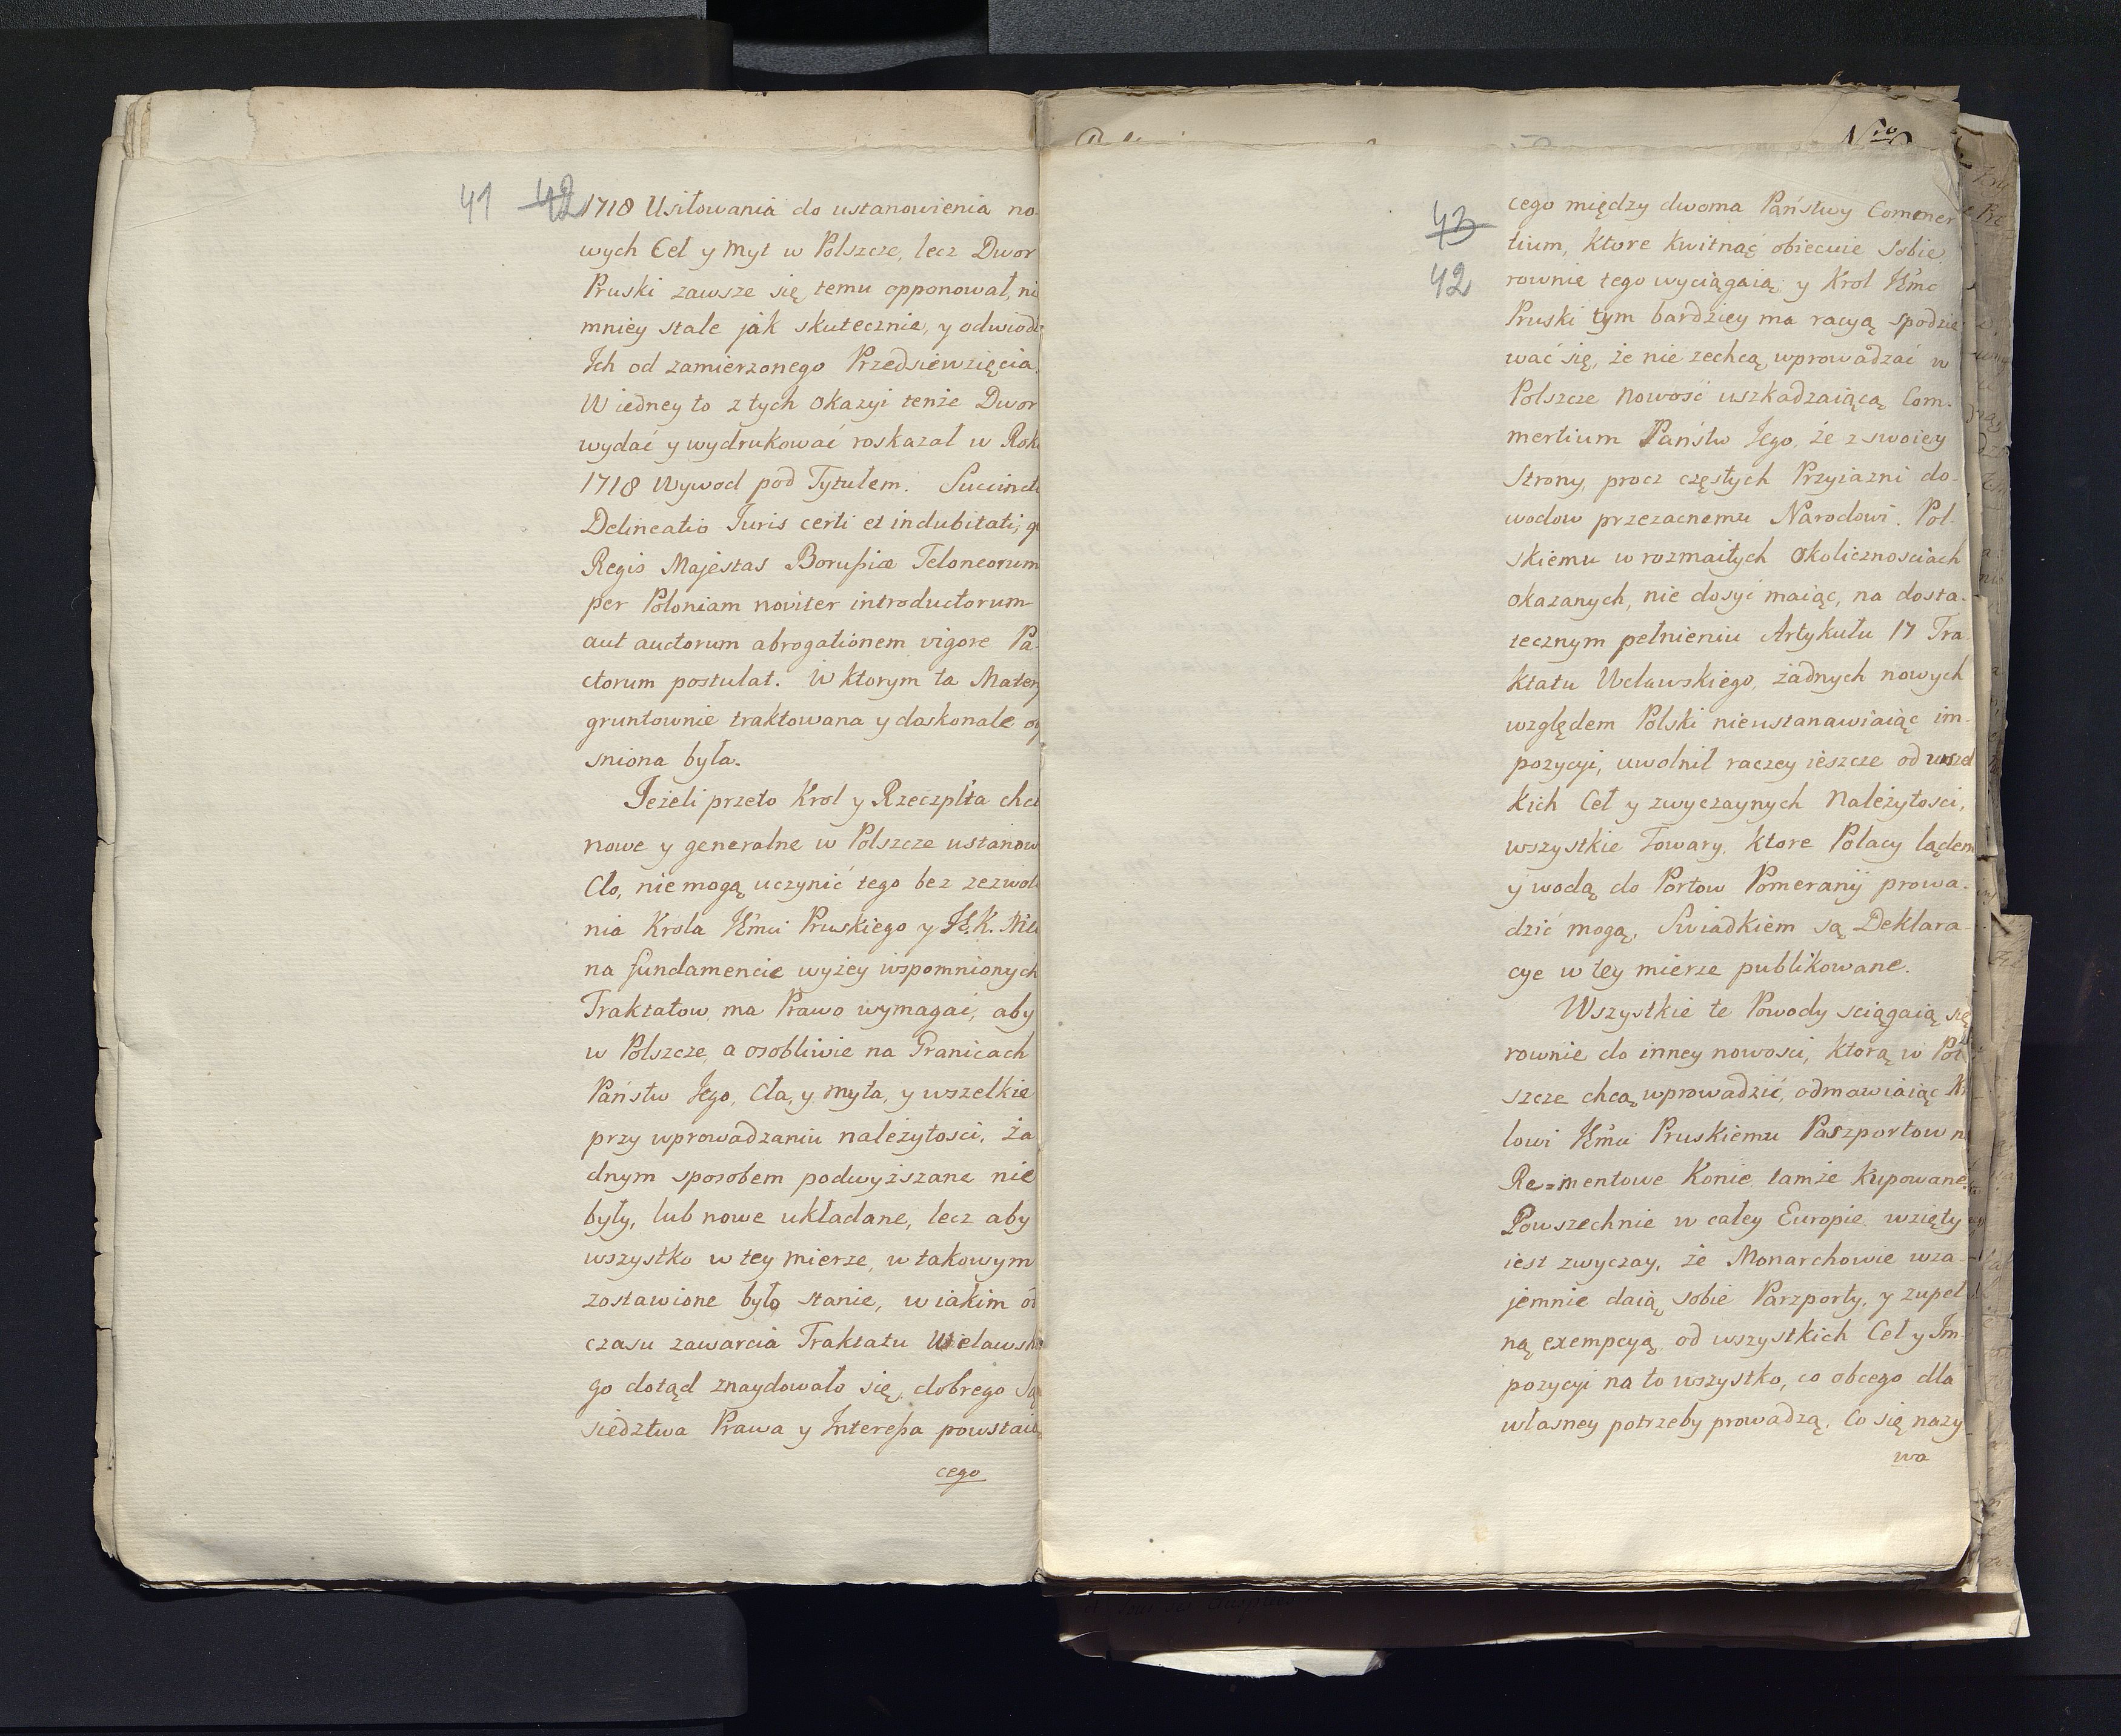 41 42
1718 Usiłowania do ustanowienia no-
wych Ceł y Myt w Polszcze, lecz Dwor
Pruski zawsze się temu opponował, ni
mniey stale jak skutecznie, y odwiodł
Ich od zamierzonego Przedsiewzięcia.
W iedney to z tych okazyi tenże Dwor
wydać y wydrukować roskazał w Rok
1718 Wywod pod Tytułem. Succincta
Delineatio Juris certi et indubitati, q
Regis Majestas Borußiæ Teloneorum
per Poloniam noviter introductorum
aut auctorum abrogationem vigore Pa-
ctorum postulat. W ktorym ta Matery
gruntownie traktowana y doskonale ob
sniona była.
Jeżeli przeto Krol y Rzeczplta chcą
nowe y generalne w Polszcze ustanow
Cło, nie mogą uczynić tego bez zezwole
nia Krola JEmci Pruskiego y J.K. Mć
na fundamencie wyżey wspomnionych
Traktatow, ma Prawo wymagać, aby
w Polszcze, a osobliwie na Granicach
Państw Jego, Cła, y Myta, y wszelkie
przy wprowadzaniu należytosci, ża
dnym sposobem podwyższane nie
były, lub nowe układane, lecz aby
wszystko w tey mierze, w takowym
zostawione było stanie, w iakim od
czasu zawarcia Traktatu Welawski
go dotąd znaydowało się, dobrego Są
siedztwa Prawa y Intereßa powstaią
cego
Nro
43
42
cego między dwoma Państwy Commer
tium, ktore kwitnąć obiecuie sobie,
rownie tego wyciągaią; y Krol JEmć
Pruski tym bardziey ma racyą spodzie
wać się, że nie zechcą wprowadzać w
Polszcze nowość uszkadzaiącą Com-
mertium Państw Jego, że z swoiey
Strony, procz częstych Przyiazni do-
wodow przezacnemu Narodowi Pol-
skiemu w rozmaitych okolicznosciach
okazanych, nie dosyć maiąc, na dosta-
tecznym pełnieniu Artykułu 17 Tra-
ktatu Welawskiego, żadnych nowych
względem Polski nieustanawiaiąc im-
pozycyi, uwolnił raczey ieszcze od wszel
kich Ceł y zwyczaynych Należytosci,
wszystkie Towary, ktore Polacy lądem
y wodą do Portow Pomeranij prowa-
dzić mogą, Swiadkiem są Deklara-
cye w tey mierze publikowane.
Wszystkie te Powody sciągaią się
rownie do inney nowosci, ktorą w Pol
szcze chcą wprowadzić, odmawiaiąc Kr
lowi JEmci Pruskiemu Paszportow n
Re=mentowe Konie, tamże kupowane.
Powszechnie w całey Europie wzięty
iest zwyczay, że Monarchowie wza-
jemnie daią sobie Parzporty, y zupeł
ną exempcyą od wszystkich Ceł y Im-
pozycyi na to wszystko, co obcego dla
własney potrzeby prowadzą. Co się nazy
wa